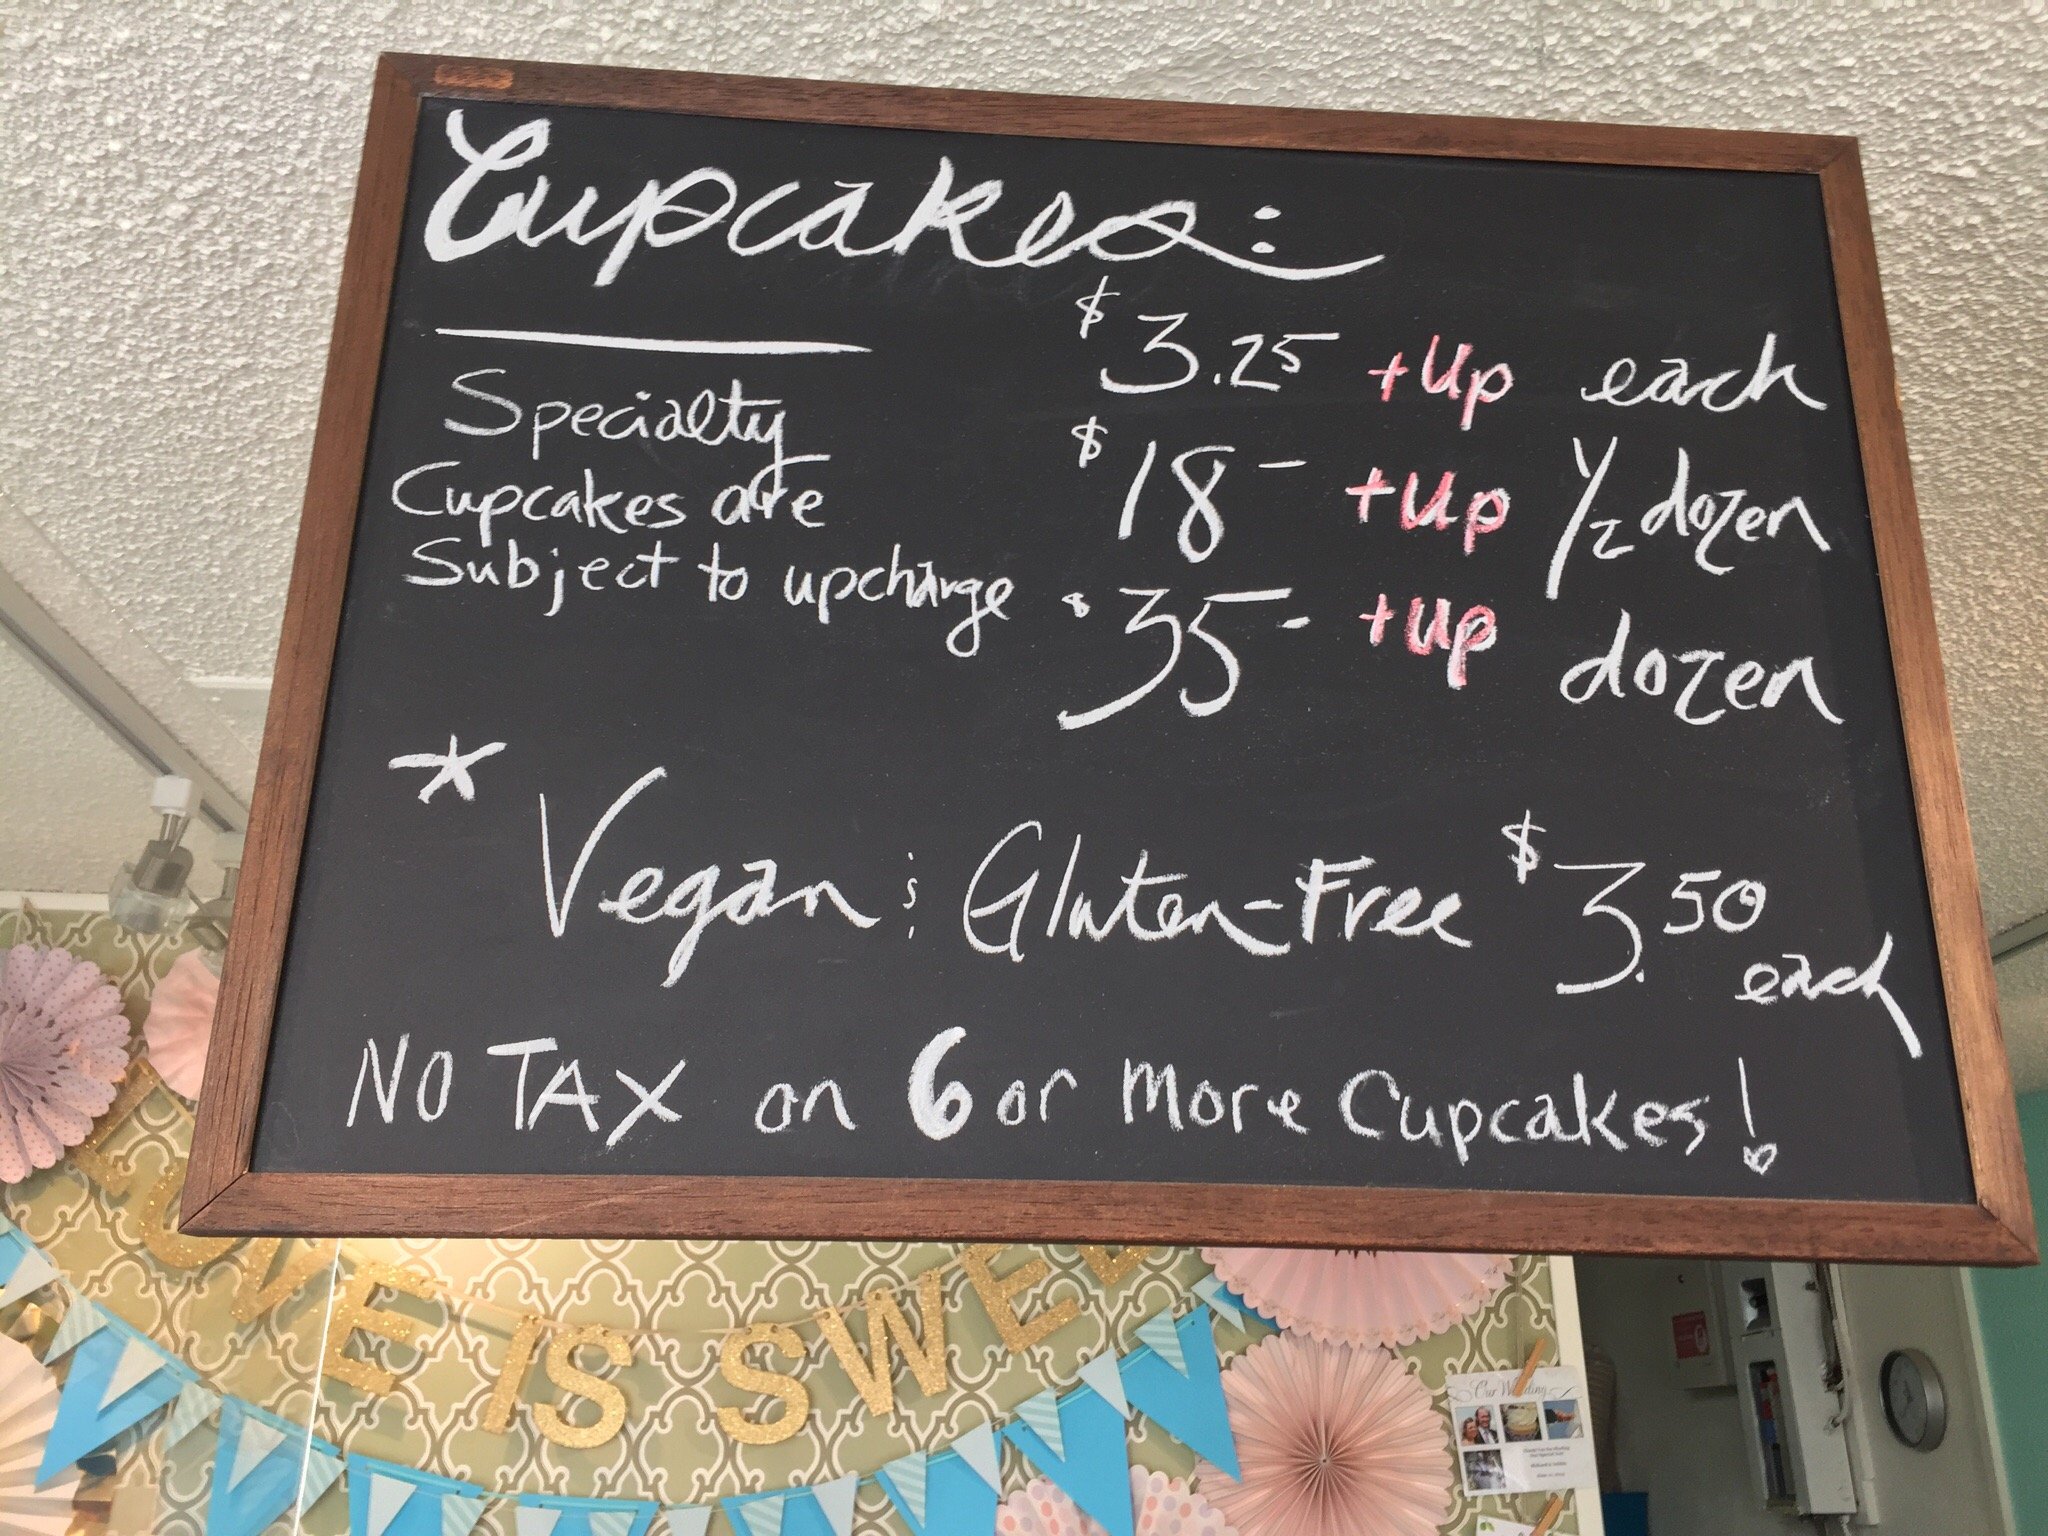 Cupcakes:
$3.25 +Up each
Specialty
Cupcakes are
Subject to upcharge
$18- +Up 1/2 dozen
$35- +Up dozen
* Vegan & Gluten-Free $3.50 each
NO TAX on 6 or More Cupcakes!
LOVE IS SWEE
Our Wedding